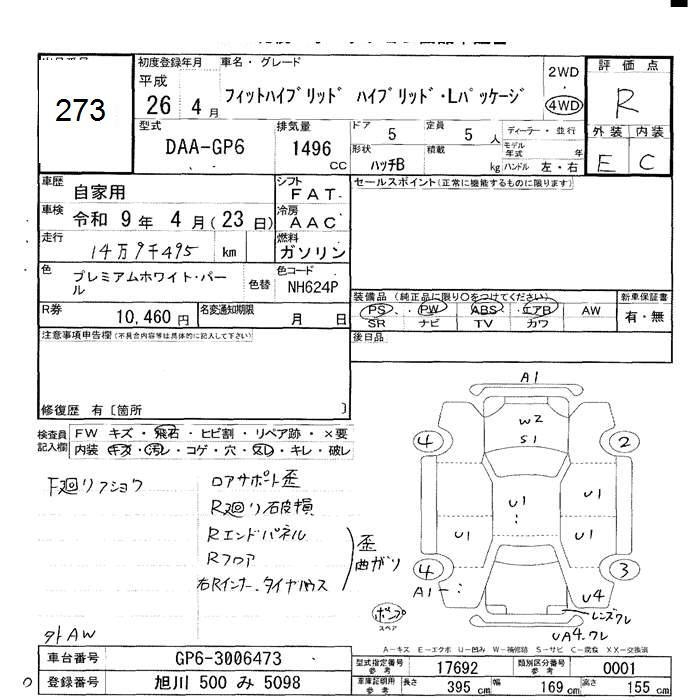 273
初度登録年月
車名・グレード
平成
26 4 月
フィットハイブリッド ハイブリッド・Lパッケージ
2WD
4WD
評価点
R
外装 内装
E C
型式
DAA-GP6
排気量
1496
CC
ドア 5
定員 5 人
形状
ハッチB
積載
kg
ディーラー・並行
モデル年式 年
ハンドル 左・右
車歴
自家用
シフト
FAT
セールスポイント(正常に機能するものに限ります)
車検
令和 9 年 4 月(23 日)
冷房
AAC
走行
14万9千495 km
燃料
ガソリン
色
プレミアムホワイト・パール
色替
色コード
NH624P
装備品 (純正品に限り○をつけてください)
新車保証書
PS PW ABS エアB AW
有・無
SR ナビ TV カワ
R券
10,460 円
名変通知期限
月 日
注意事項申告欄(不具合内容等は具体的に記入して下さい)
後日品
修復歴 有 [箇所 ]
検査員記入欄
FW キズ・飛石・ヒビ割・リペア跡・×要
内装 キズ・汚レ・コゲ・穴・スレ・キレ・破レ
F廻リアショウ
ロアサポート歪
R廻リ破損
Rエンドパネル
Rフロア
右Rインナー、タイヤハウス
歪
曲がり
外AW
A1
W2
S1
4 2
U1
U1
U1 U1
4 3
A1
U4
レンズワレ
UA4.ワレ
ポンプ
スペア
A-キズ E-エクボ U-凹み W-補修跡 S-サビ C-腐食 XX-交換済
車台番号
GP6-3006473
登録番号
旭川 500 み 5098
型式指定番号 参考
17692
類別区分番号 参考
0001
車庫証明用 参考
長さ 395 cm 幅 169 cm 高さ 155 cm